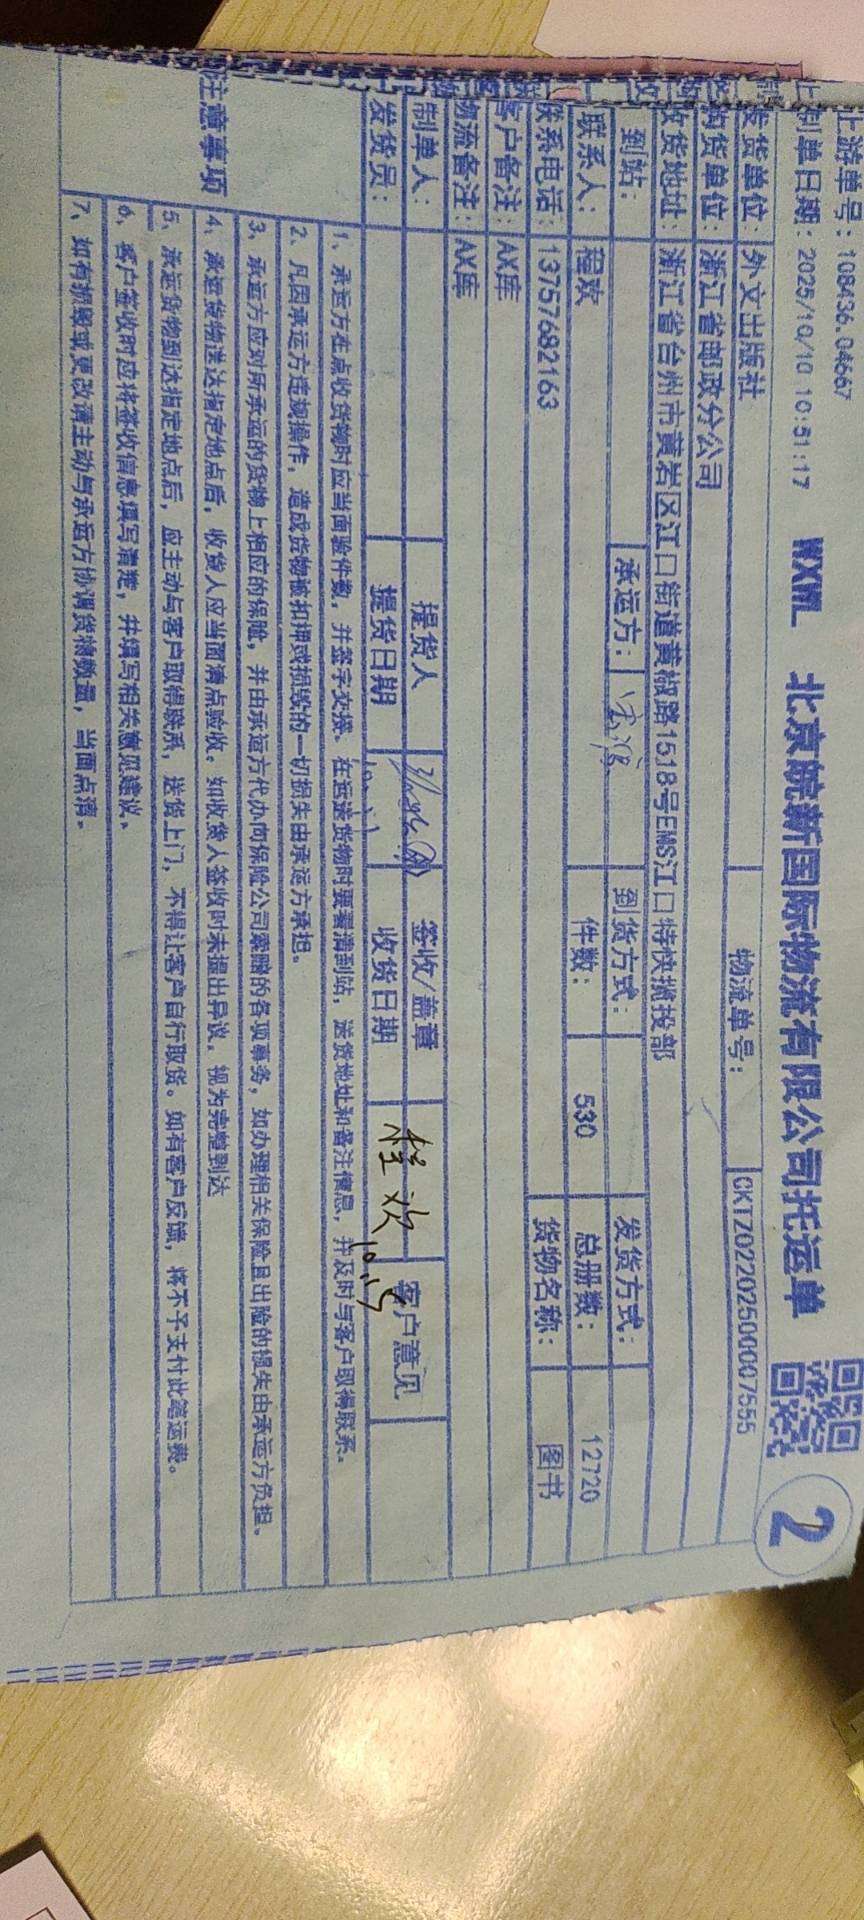 上游单号：108436.04667
制单日期：2025/10/10 10:51:17
WXWL 北京皖新国际物流有限公司托运单
2
发货单位：外文出版社 物流单号：CKTZ0220250007555
购货单位：浙江省邮政分公司
收货地址：浙江省台州市黄岩区江口街道黄椒路1518号EMS江口特快揽投部
到站： 承运方： 到货方式： 发货方式：
联系人：程效 件数：530 总册数：12720
联系电话：13757682163 货物名称：图书
客户备注：AX库
物流备注：AX库
制单人： 提货人 签收/盖章 程效 客户意见
发货员： 提货日期 收货日期 10.15
注意事项
1、承运方在点收货物时应当面验件数，并签字交接。在运送货物时要看清到站，送货地址和备注信息，并及时与客户取得联系。
2、凡因承运方违规操作，造成货物被扣押或损毁的一切损失由承运方承担。
3、承运方应对所承运的货物上相应的保险，并由承运方代办向保险公司索赔的各项事务，如办理相关保险且出险的损失由承运方负担。
4、承运货物送达指定地点后，收货人应当面清点验收。如收货人签收时未提出异议，视为完整到达
5、承运货物到达指定地点后，应主动与客户取得联系，送货上门，不得让客户自行取货。如有客户反馈，将不予支付此笔运费。
6、客户签收时应将签收信息填写清楚，并填写相关意见建议。
7、如有损毁或更改请主动与承运方协调货物数量，当面点清。